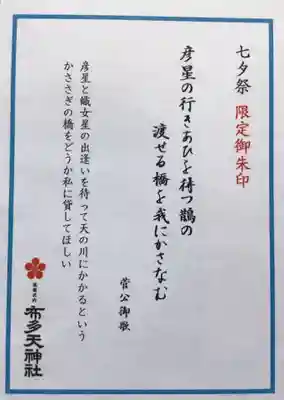 七夕祭 限定御朱印
彦星の行きあひを待つ鵲の
渡せる橋を我にかさなむ
菅公御歌
彦星と織女星の出逢いを待って天の川にかかるという
かささぎの橋をどうか私に貸してほしい
布多天神社